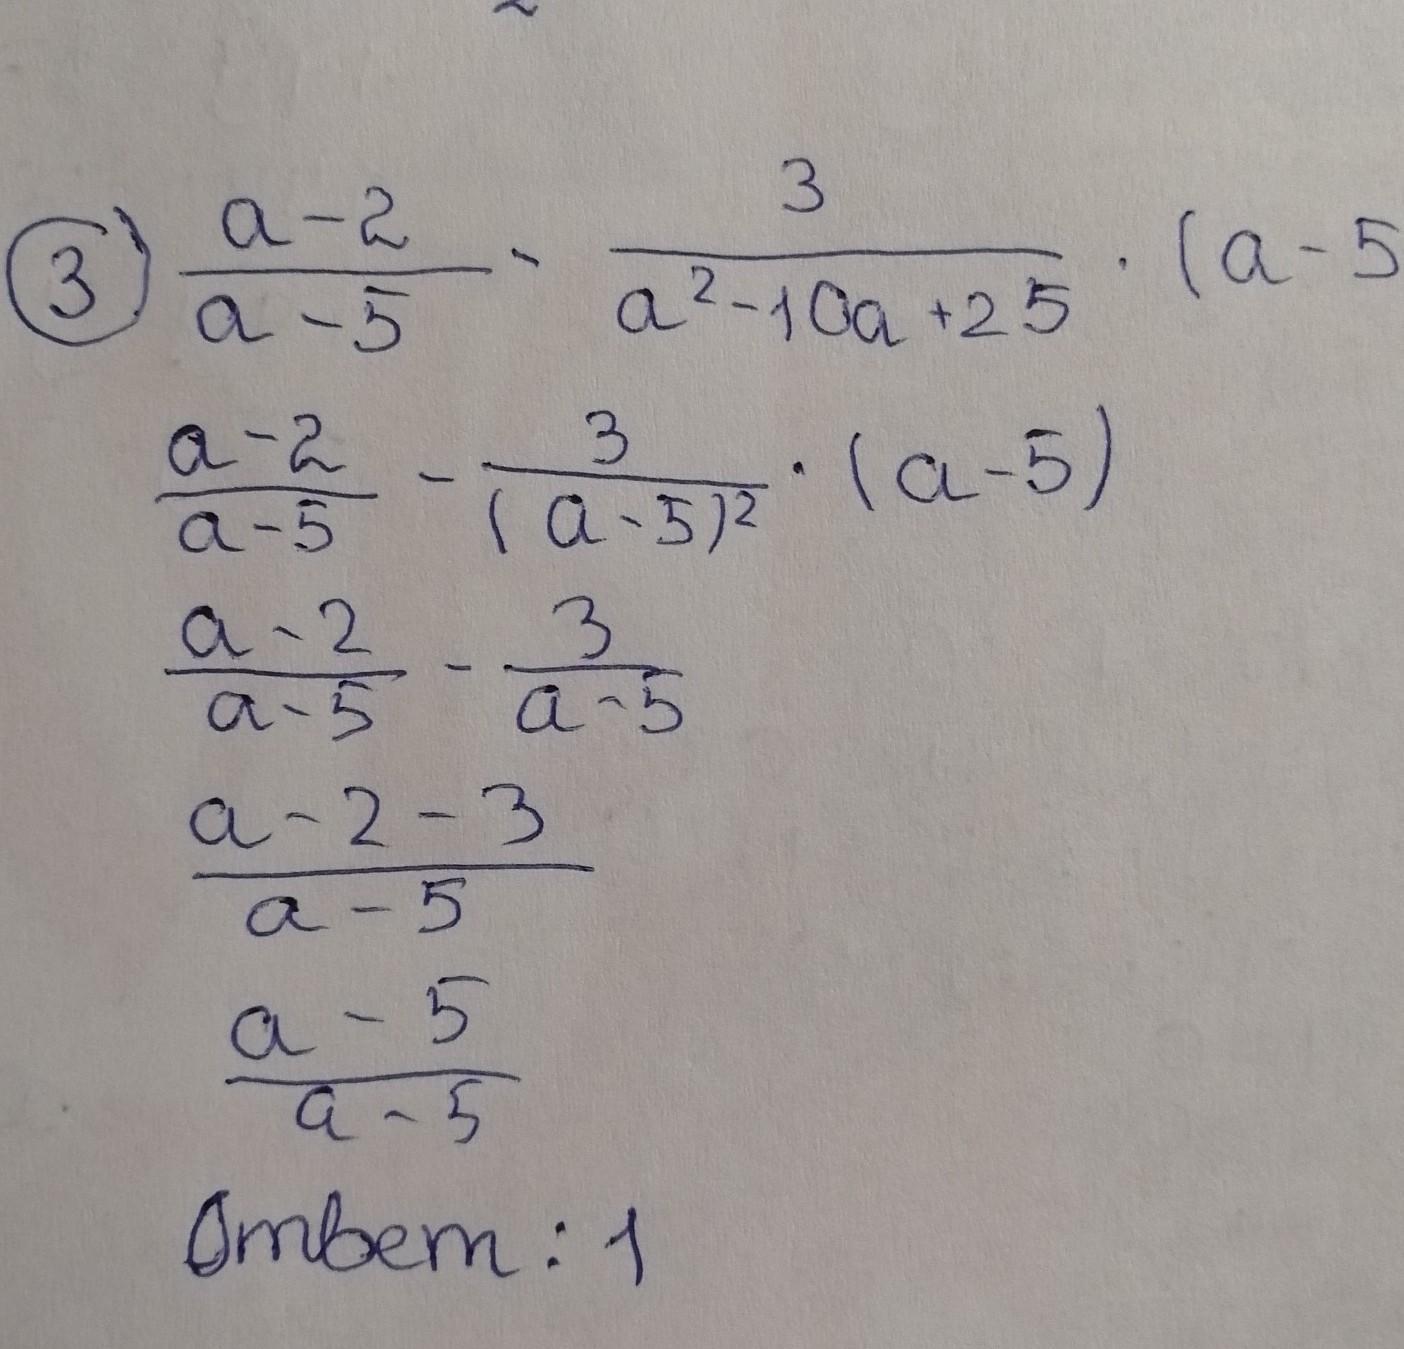 3) (a-2)/(a-5) - 3/(a²-10a+25) · (a-5
(a-2)/(a-5) - 3/(a-5)² · (a-5)
(a-2)/(a-5) - 3/(a-5)
(a-2-3)/(a-5)
(a-5)/(a-5)
Ответ: 1